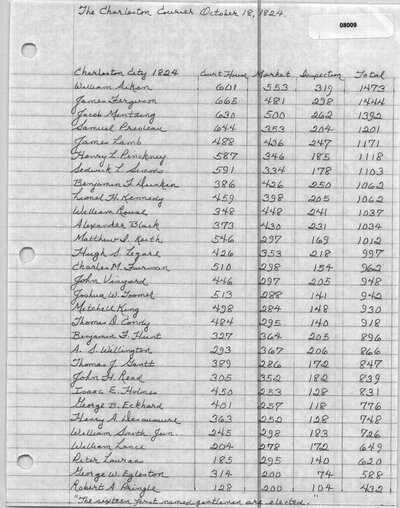 The Charleston Courier October 18, 1824.
08009
Charleston City 1824 Curt House Market Inspection Total
William Aiken 601 553 319 1473
James Ferguson 665 481 298 1444
Jacob Mintzing 630 500 262 1392
Samuel Prioleau 644 353 204 1201
James Lamb 488 436 247 1171
Henry L. Pinckney 587 346 185 1118
Sedwick L. Simons 591 334 178 1103
Benjamin F. Dunkin 386 426 250 1062
Lionel H. Kennedy 459 398 205 1062
William Rouse 348 448 241 1037
Alexander Black 373 430 231 1034
Matthew I. Keith 546 297 169 1012
Hugh S. Legare 426 353 218 997
Charles M. Furman 510 298 154 962
John Vinyard 446 297 205 948
Joshua W. Toomer 513 288 141 942
Mitchell King 498 284 148 930
Thomas D. Condy 484 295 140 918
Benjamin F. Hunt 327 364 205 896
A. S. Willington 293 367 206 866
Thomas J. Gantt 389 286 172 847
John H. Read 305 352 182 839
Isaac E. Holmes 450 253 128 831
George B. Eckhard 401 257 118 776
Henry A. Desaussure 363 252 128 748
William Smith Jun. 245 298 183 726
William Lance 204 278 172 649
Peter Laurans 185 295 140 620
George W. Egleston 314 200 74 588
Robert A. Pringle 128 200 104 432
"The sixteen first named gentlemen are elected."